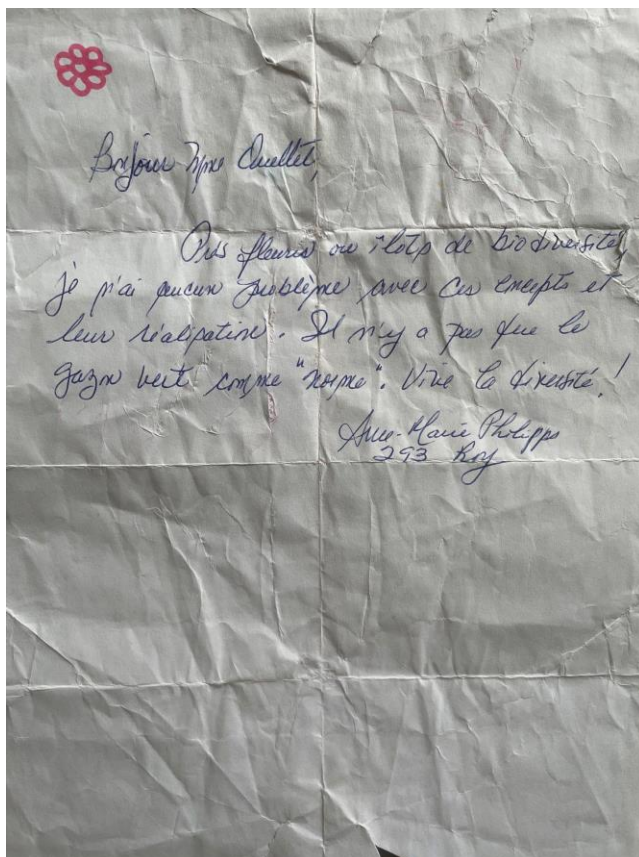 Bonjour Mme Ouellet,
Prés fleuris ou îlots de biodiversité,
je n'ai aucun problème avec ces concepts et
leur réalisation. Il n'y a pas que le
gazon vert comme "norme". Vive la diversité!
Anne-Marie Philipps
293 Roy